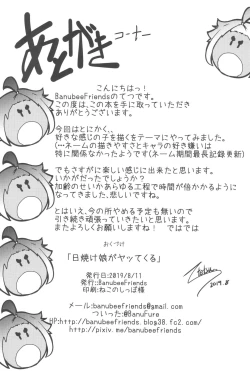 あとがき コーナー
こんにちはっ!
BanubeeFriendsのてつです。
この度は、この本を手に取っていただき
ありがとうございます。
今回はとにかく、、
好きな感じの子を描くをテーマにやってみました。
(←ネームの描きやすさとキャラの好き嫌いは
特に関係なかったようです(ネーム期間最長記録更新)
でもさすがに楽しい感じに出来たと思います。
いかがだったでしょうか?
加齢のせいかあらゆる工程で時間が倍かかるように
なってきました、悲しいですね。
とはいえ、今の所やめる予定も無いので
引き続き頑張っていきたいと思います。
またよろしくお願いしますね! ではでは
おくづけ
「日焼け娘がヤッてくる」
発行日:2019/8/11
発行::BanubeeFriends
印刷:ねこのしっぽ様
2019.8
メール:banubeefriends@gmail.com
ついった:@BanuFure
HP:http://banubeefriends.blog38.fc2.com/
http://pixiv.me/banubeefriends